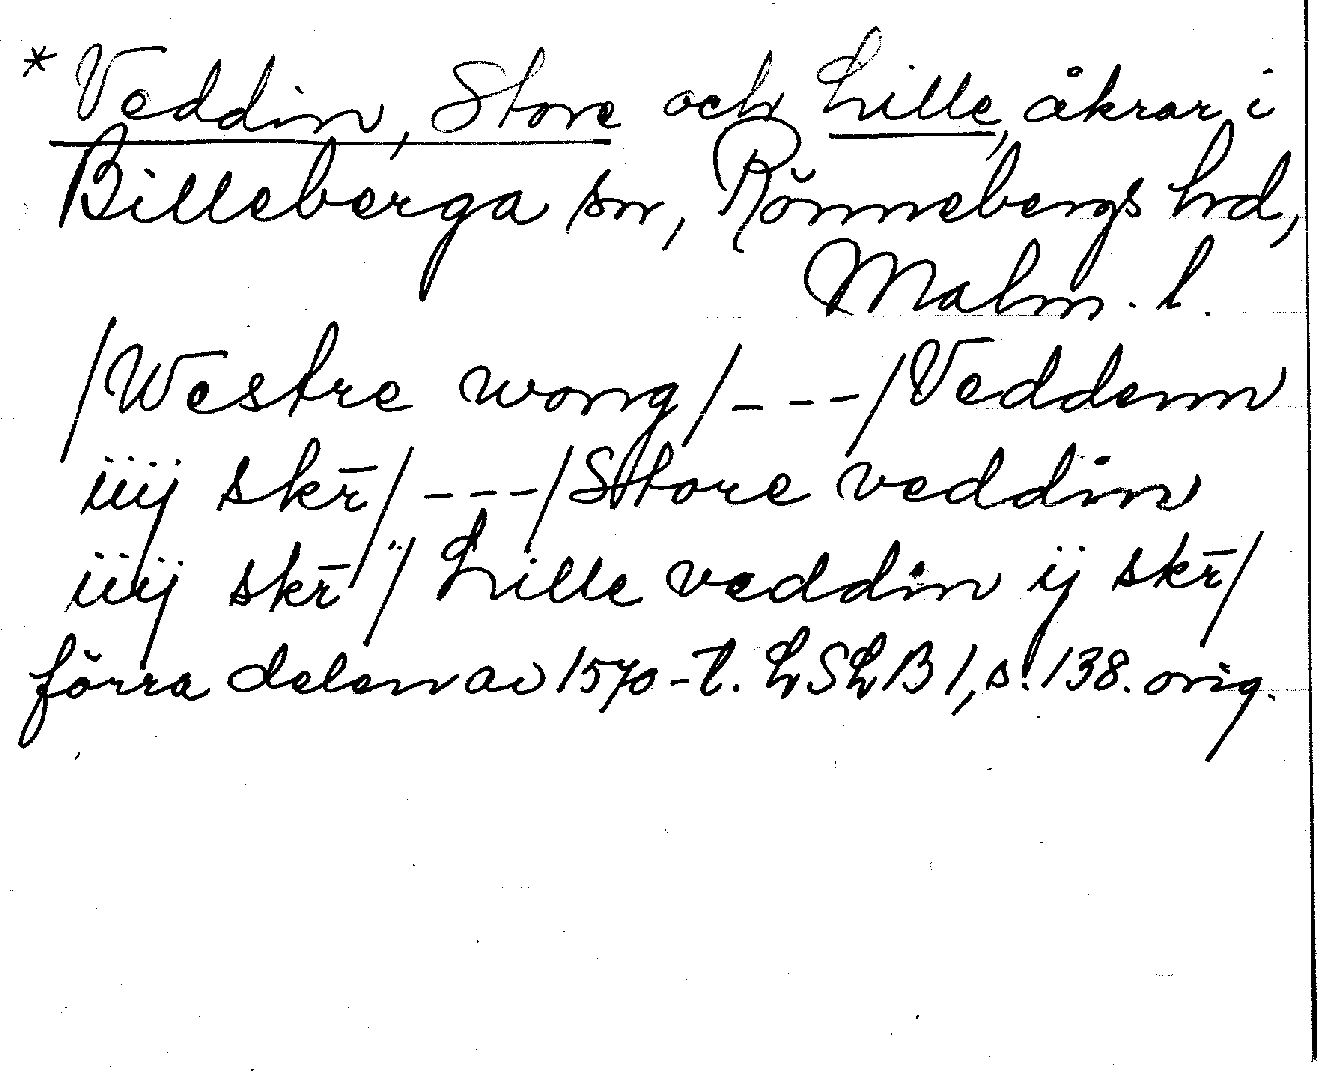 * Veddin, Store och Lille, åkrar i
Billeberga sn, Rönnebergs hrd,
Malm. l.
/Westre wong/ - - - /Veddenn
iiij skr̄/ - - - /Store veddin
iiij skr̄ / Lille veddin ij skr̄/
förra delen av 1570-t. LSLB 1, s. 138. orig.